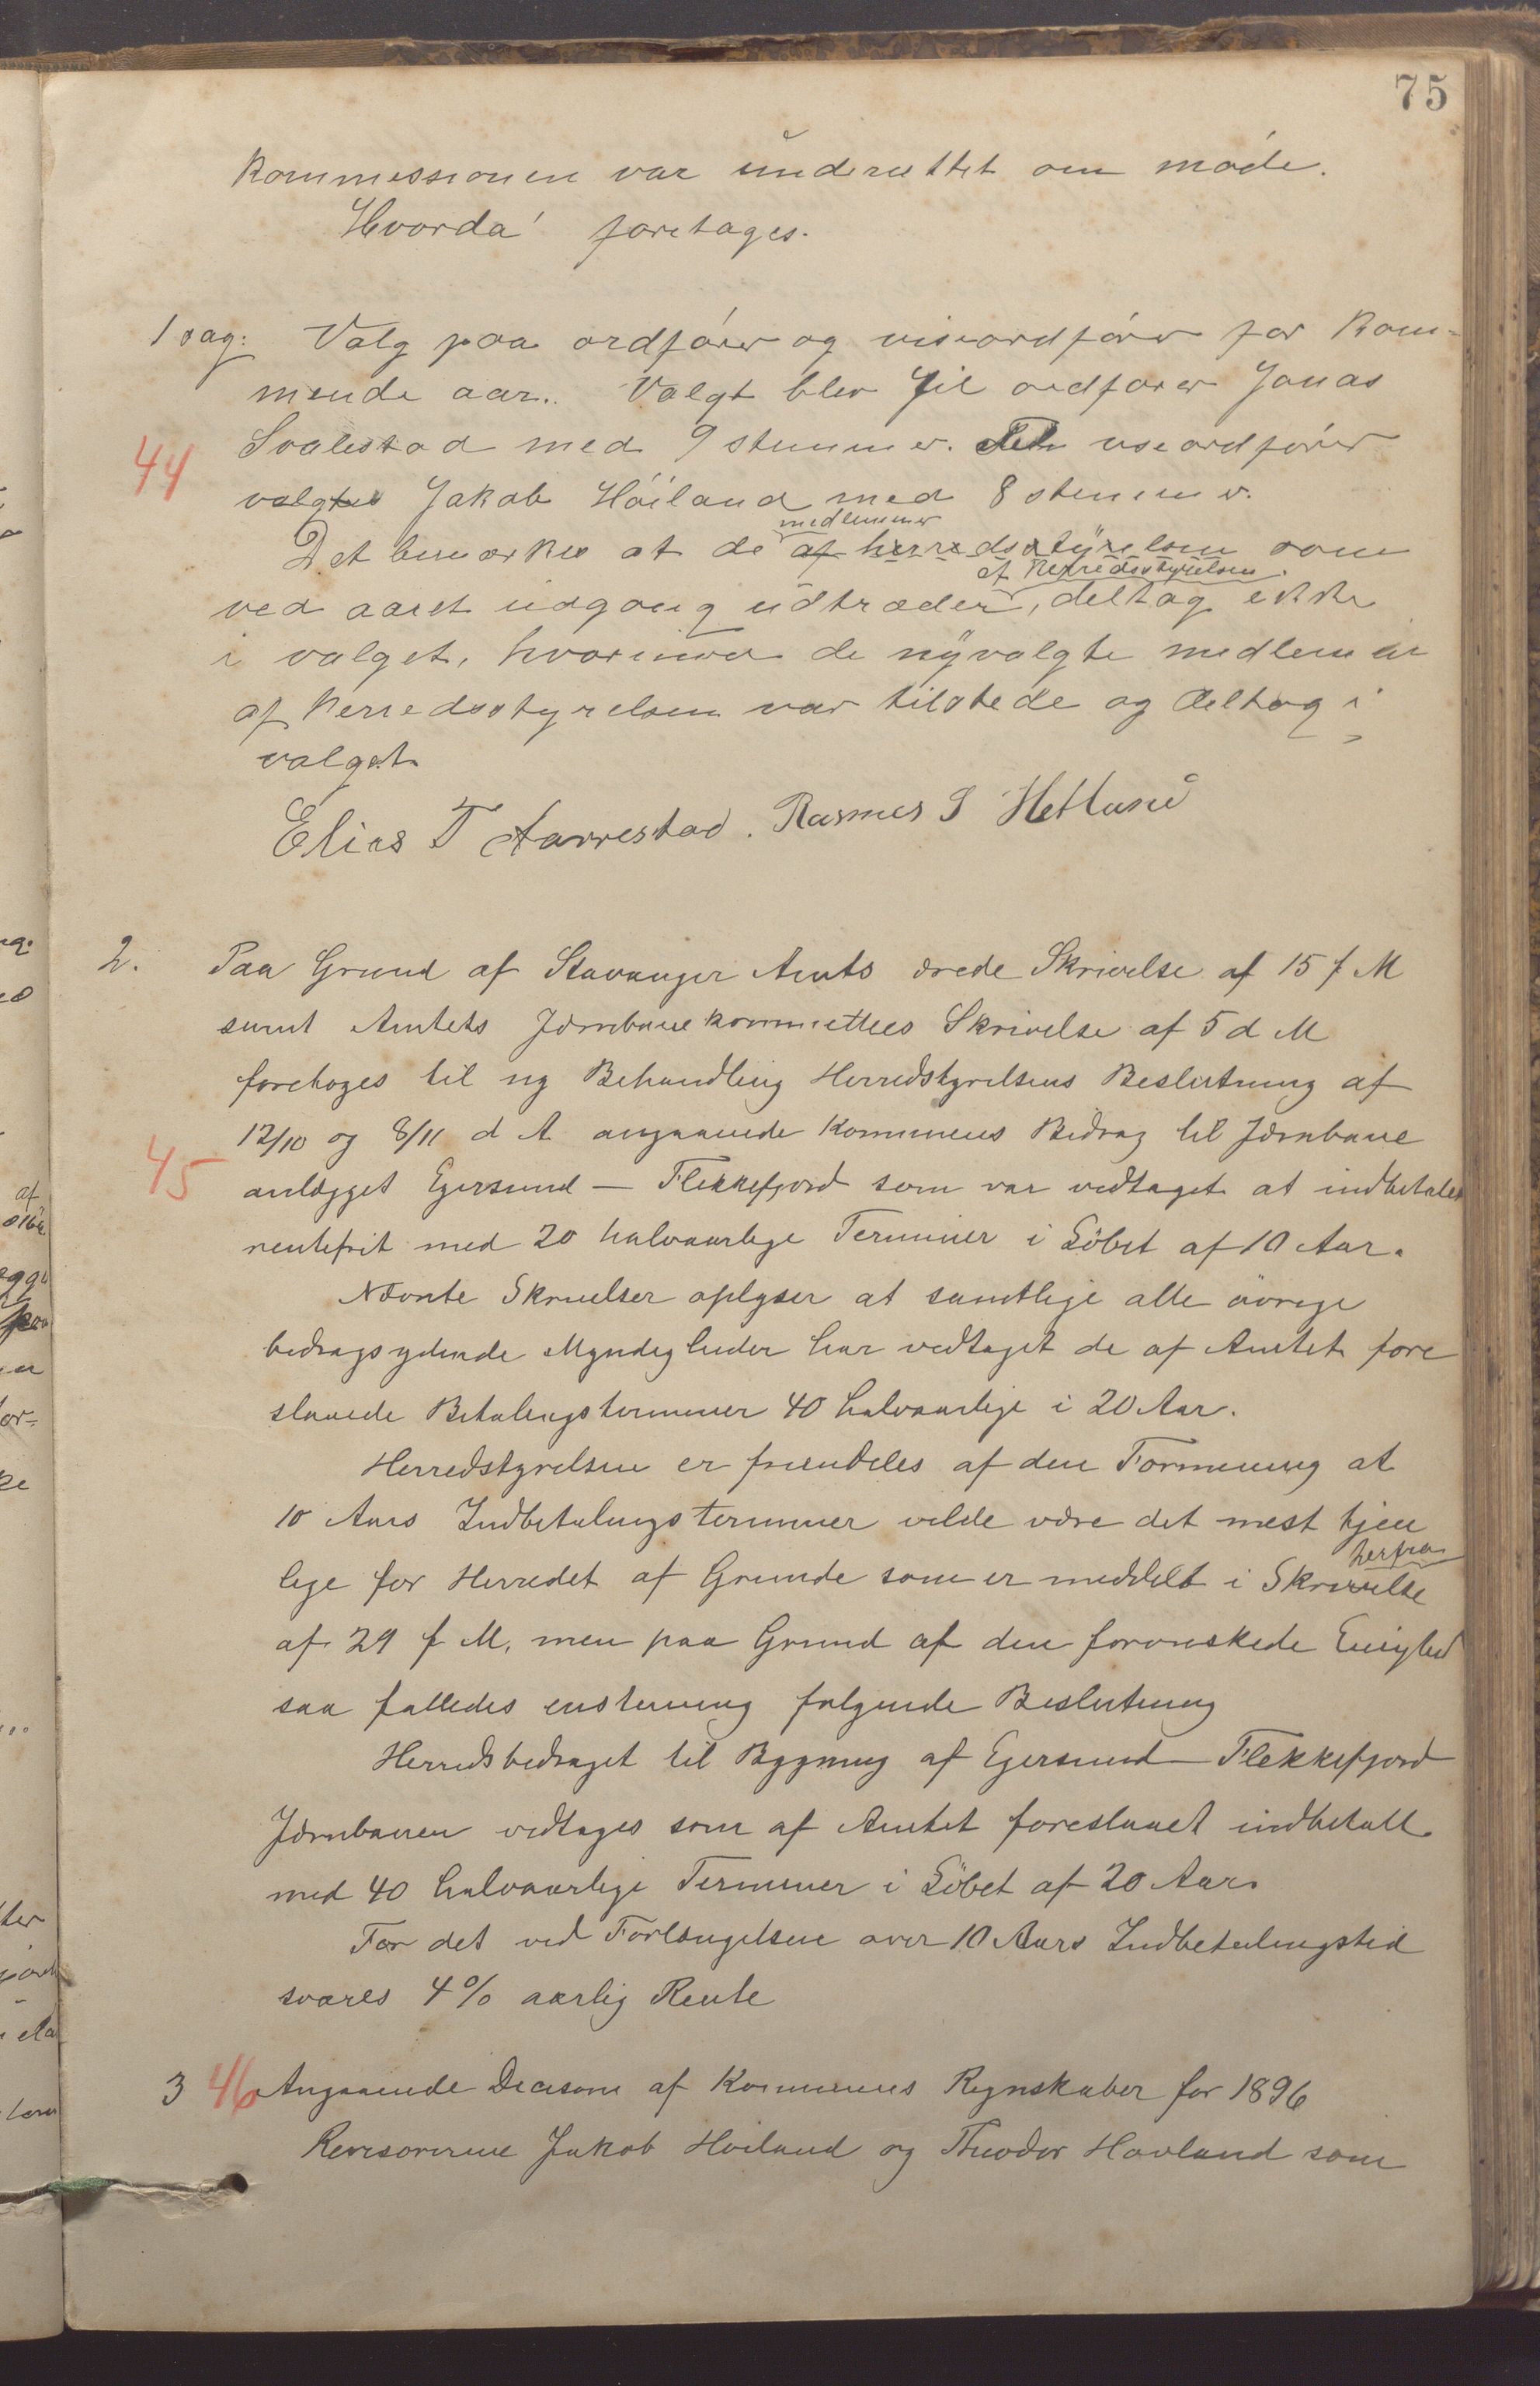 75
Kommessionen var underrettet om møde.
Hvorda foretages.
1 sag: Valg paa ordfører og viseordfører for Kom-
mende aar. Valgt blev til ordfører Jonas
44 Svalestad med 9 stemmer. Til viseordfører
valgtes Jakob Höiland med 8 stemmer.
medlemmer
Det bemærkes at de af herredsstyrelsen som
af herredsstyrelsen
ved aaret udgang udtræder, deltog ikke
i valget, hvorimod de nyvalgte medlemer
af herredsstyrelsen var tilstede og deltog i
valget
Elias T Aarrestad. Rasmus S Hetland
2. Paa Grund af Stavanger Amts ærede Skrivelse af 15 f M
samt Amtets Jernbanekommittees Skrivelse af 5 d M
foretages til ny Behandling Herredstyrelsens Beslutning af
12/10 og 8/11 d A angaaende Kommunens Bidrag til Jernbane
45 anlægget Egersund — Flekkefjord som var vedtaget at indbetales
rentefrit med 20 halvaarlige Terminer i Löbet af 10 Aar.
Nævnte Skrivelser oplyser at samtlige alle øvrige
bidragsydende Myndigheder har vedtaget de af Amtet fore
slaaede Betalingsterminer 40 halvaarlige i 20 Aar.
Herredstyrelsen er fremdeles af den Formening at
10 Aars Indbetalingsterminer vilde være det mest tjen
herfra
lige for Herredet af Grunde som er meddelt i Skrivelse
af 29 f M, men paa Grund af den forønskede Enighed
saa fattedes enstemmig følgende Beslutning
Herredsbidraget til Bygning af Egersund — Flekkefjord
Jernbanen vedtages som af Amtet foreslaaet indbetalt
med 40 halvaarlige Terminer i Löbet af 20 Aar.
For det ved Forlængelsen over 10 Aars Indbetalingstid
svares 4% aarlig Rente
3 46 Angaaende Decision af Kommunens Regnskaber for 1896
Revisorerne Jakob Höiland og Theodor Hovland som